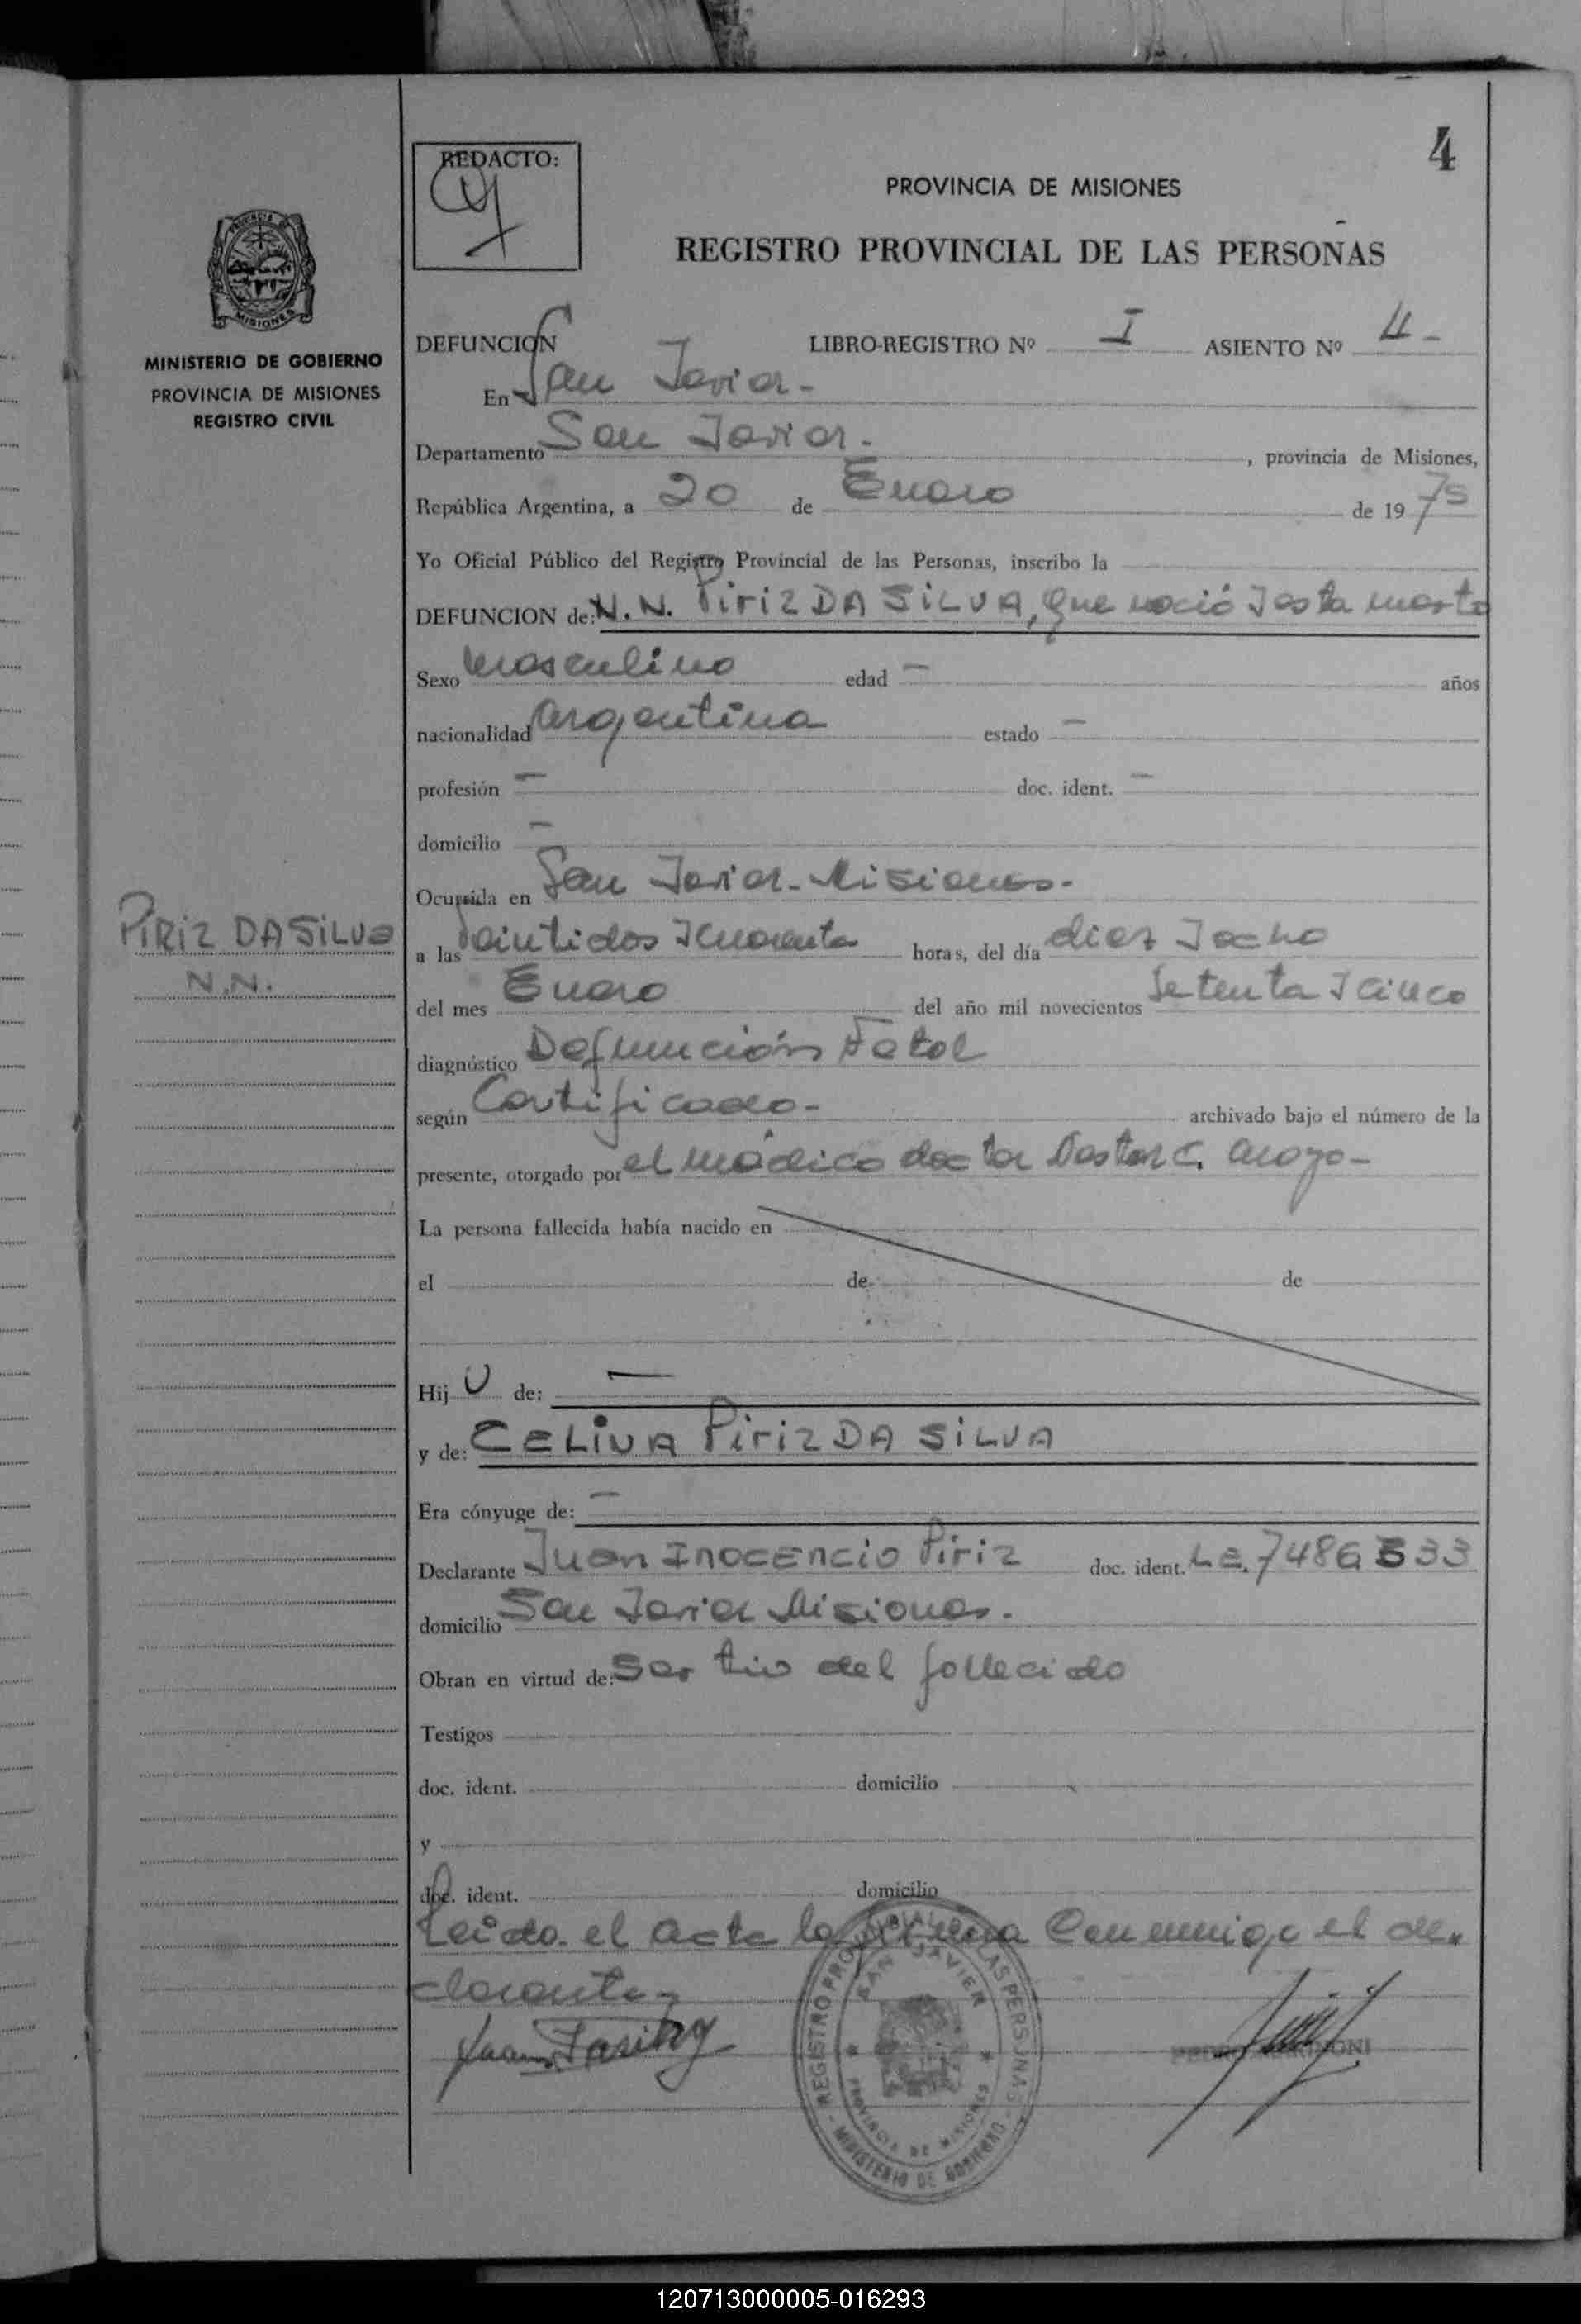 4
REDACTO:
PROVINCIA DE MISIONES
REGISTRO PROVINCIAL DE LAS PERSONAS
MISIONES
MINISTERIO DE GOBIERNO
PROVINCIA DE MISIONES
REGISTRO CIVIL
DEFUNCION LIBRO-REGISTRO Nº I ASIENTO Nº 4-
En San Javier-
Departamento San Javier.-, provincia de Misiones,
República Argentina, a 20 de Enero de 1975
Yo Oficial Público del Registro Provincial de las Personas, inscribo la
DEFUNCION de: N.N. Piriz DA SILVA, que nació y esta muerto
Sexo masculino edad - años
nacionalidad argentina estado -
profesión - doc. ident. -
domicilio -
Ocurrida en San Javier-Misiones.-
PIRIZ DA SILVA
N.N.
a las veintidos y cuarenta horas, del día diez y ocho
del mes Enero del año mil novecientos setenta y cinco
diagnóstico Defunción Fetal
según Certificado.- archivado bajo el número de la
presente, otorgado por el médico doctor Nestor C. Aroyo-
La persona fallecida había nacido en
el de de
Hijo de: —
y de: CELINA Piriz DA SILVA
Era cónyuge de: —
Declarante Juan INOCENCIO Piriz doc. ident. L.E. 7486333
domicilio San Javier Misiones.
Obran en virtud de: Ser tio del fallecido
Testigos
doc. ident. domicilio
y
doc. ident. domicilio
Leida el acta la firma Conmmigo el de-
clarante.-
REGISTRO PROVINCIAL DE LAS PERSONAS
SAN JAVIER
PROVINCIA DE MISIONES
MINISTERIO DE GOBIERNO
120713000005-016293